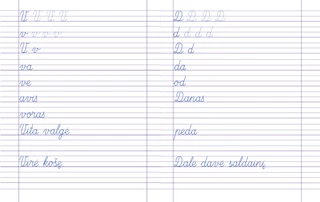 V V V V
v v v v
V v
va
ve
avis
voras
Vita valgė
Virė košę
D D D D
d d d d
D d
da
od
Danas
pėda
Dalė davė saldainį